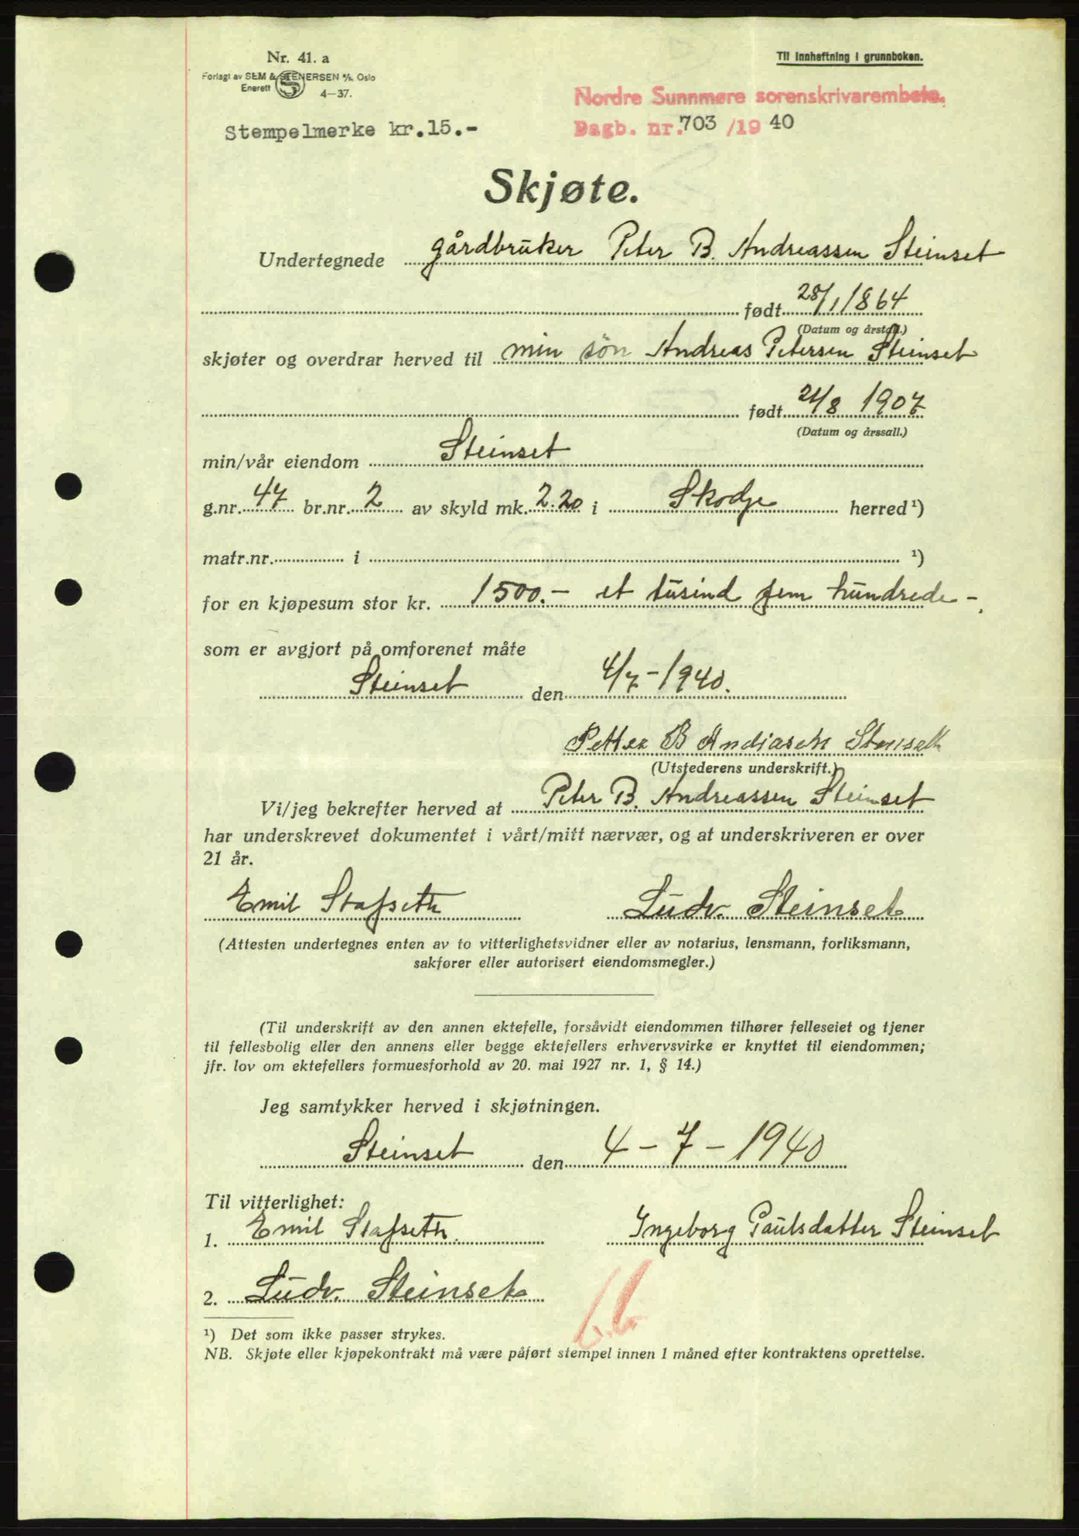 Nr. 41. a
Til innheftning i grunnboken.
Forlagt av SEM & STENERSEN A/S, Oslo
Enerett
4-37.
Nordre Sunnmøre sorenskrivarembete.
Stempelmerke kr.15.-
Dagb. nr. 703 /19 40
Skjøte.
Undertegnede gårdbruker Peter B. Andreassen Steinset
født 28/1 1864
(Datum og årstall.)
skjøter og overdrar herved til min søn Andreas Petersen Steinset
født 21/8 1907
(Datum og årssall.)
min/vår eiendom Steinset
g.nr. 47 br.nr. 2 av skyld mk. 2.20 i Skodje herred ¹)
matr.nr. i ¹)
for en kjøpesum stor kr. 1500.- et tusind fem hundrede -.
som er avgjort på omforenet måte
Steinset den 4/7-1940.
Petter B Andiasen Steinseth
(Utstederens underskrift.)
Vi/jeg bekrefter herved at Peter B. Andreassen Steinset
har underskrevet dokumentet i vårt/mitt nærvær, og at underskriveren er over
21 år.
Emil Stafseth Ludv. Steinset
(Attesten undertegnes enten av to vitterlighetsvidner eller av notarius, lensmann, forliksmann,
sakfører eller autorisert eiendomsmegler.)
(Til underskrift av den annen ektefelle, forsåvidt eiendommen tilhører felleseiet og tjener
til fellesbolig eller den annens eller begge ektefellers erhvervsvirke er knyttet til eiendommen;
jfr. lov om ektefellers formuesforhold av 20. mai 1927 nr. 1, § 14.)
Jeg samtykker herved i skjøtningen.
Steinset den 4-7-1940
Til vitterlighet:
1. Emil Stafseth. Ingeborg Paulsdatter Steinset
2. Ludv. Steinset
¹) Det som ikke passer strykes.
NB. Skjøte eller kjøpekontrakt må være påført stempel innen 1 måned efter kontraktens oprettelse.